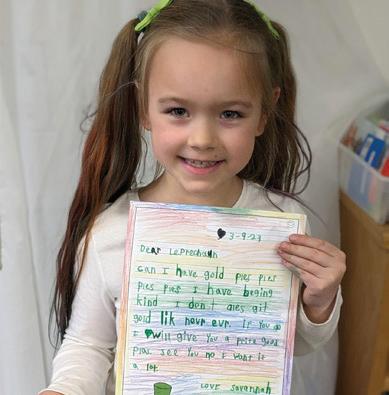 3-9-23
Dear Leprechaun
can I have gold ples ples
ples ples I have beging
kind I don't ales git
gold lik novr evr. If you do
I will give you a prise good
plas see you no I want it
a lot
Love savannah